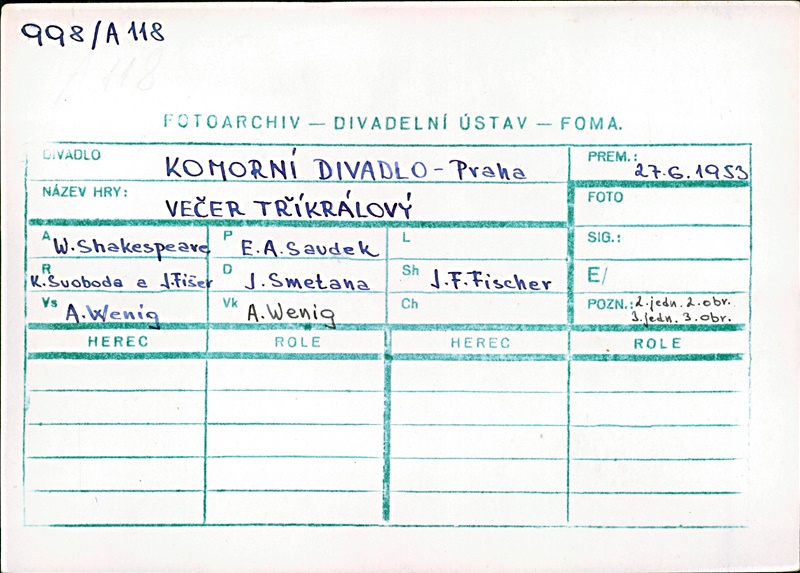 998/A 118
FOTOARCHIV — DIVADELNÍ ÚSTAV — FOMA.
DIVADLO KOMORNÍ DIVADLO - Praha PREM.: 27.6.1953
NÁZEV HRY: VEČER TŘÍKRÁLOVÝ FOTO
A W. Shakespeare P E.A. Saudek L SIG.:
R K. Svoboda a J. Fišer D J. Smetana Sh J.F. Fischer E/
Vs A. Wenig Vk A. Wenig Ch POZN.: 2. jedn. 2. obr.
3. jedn. 3. obr.
HEREC ROLE HEREC ROLE